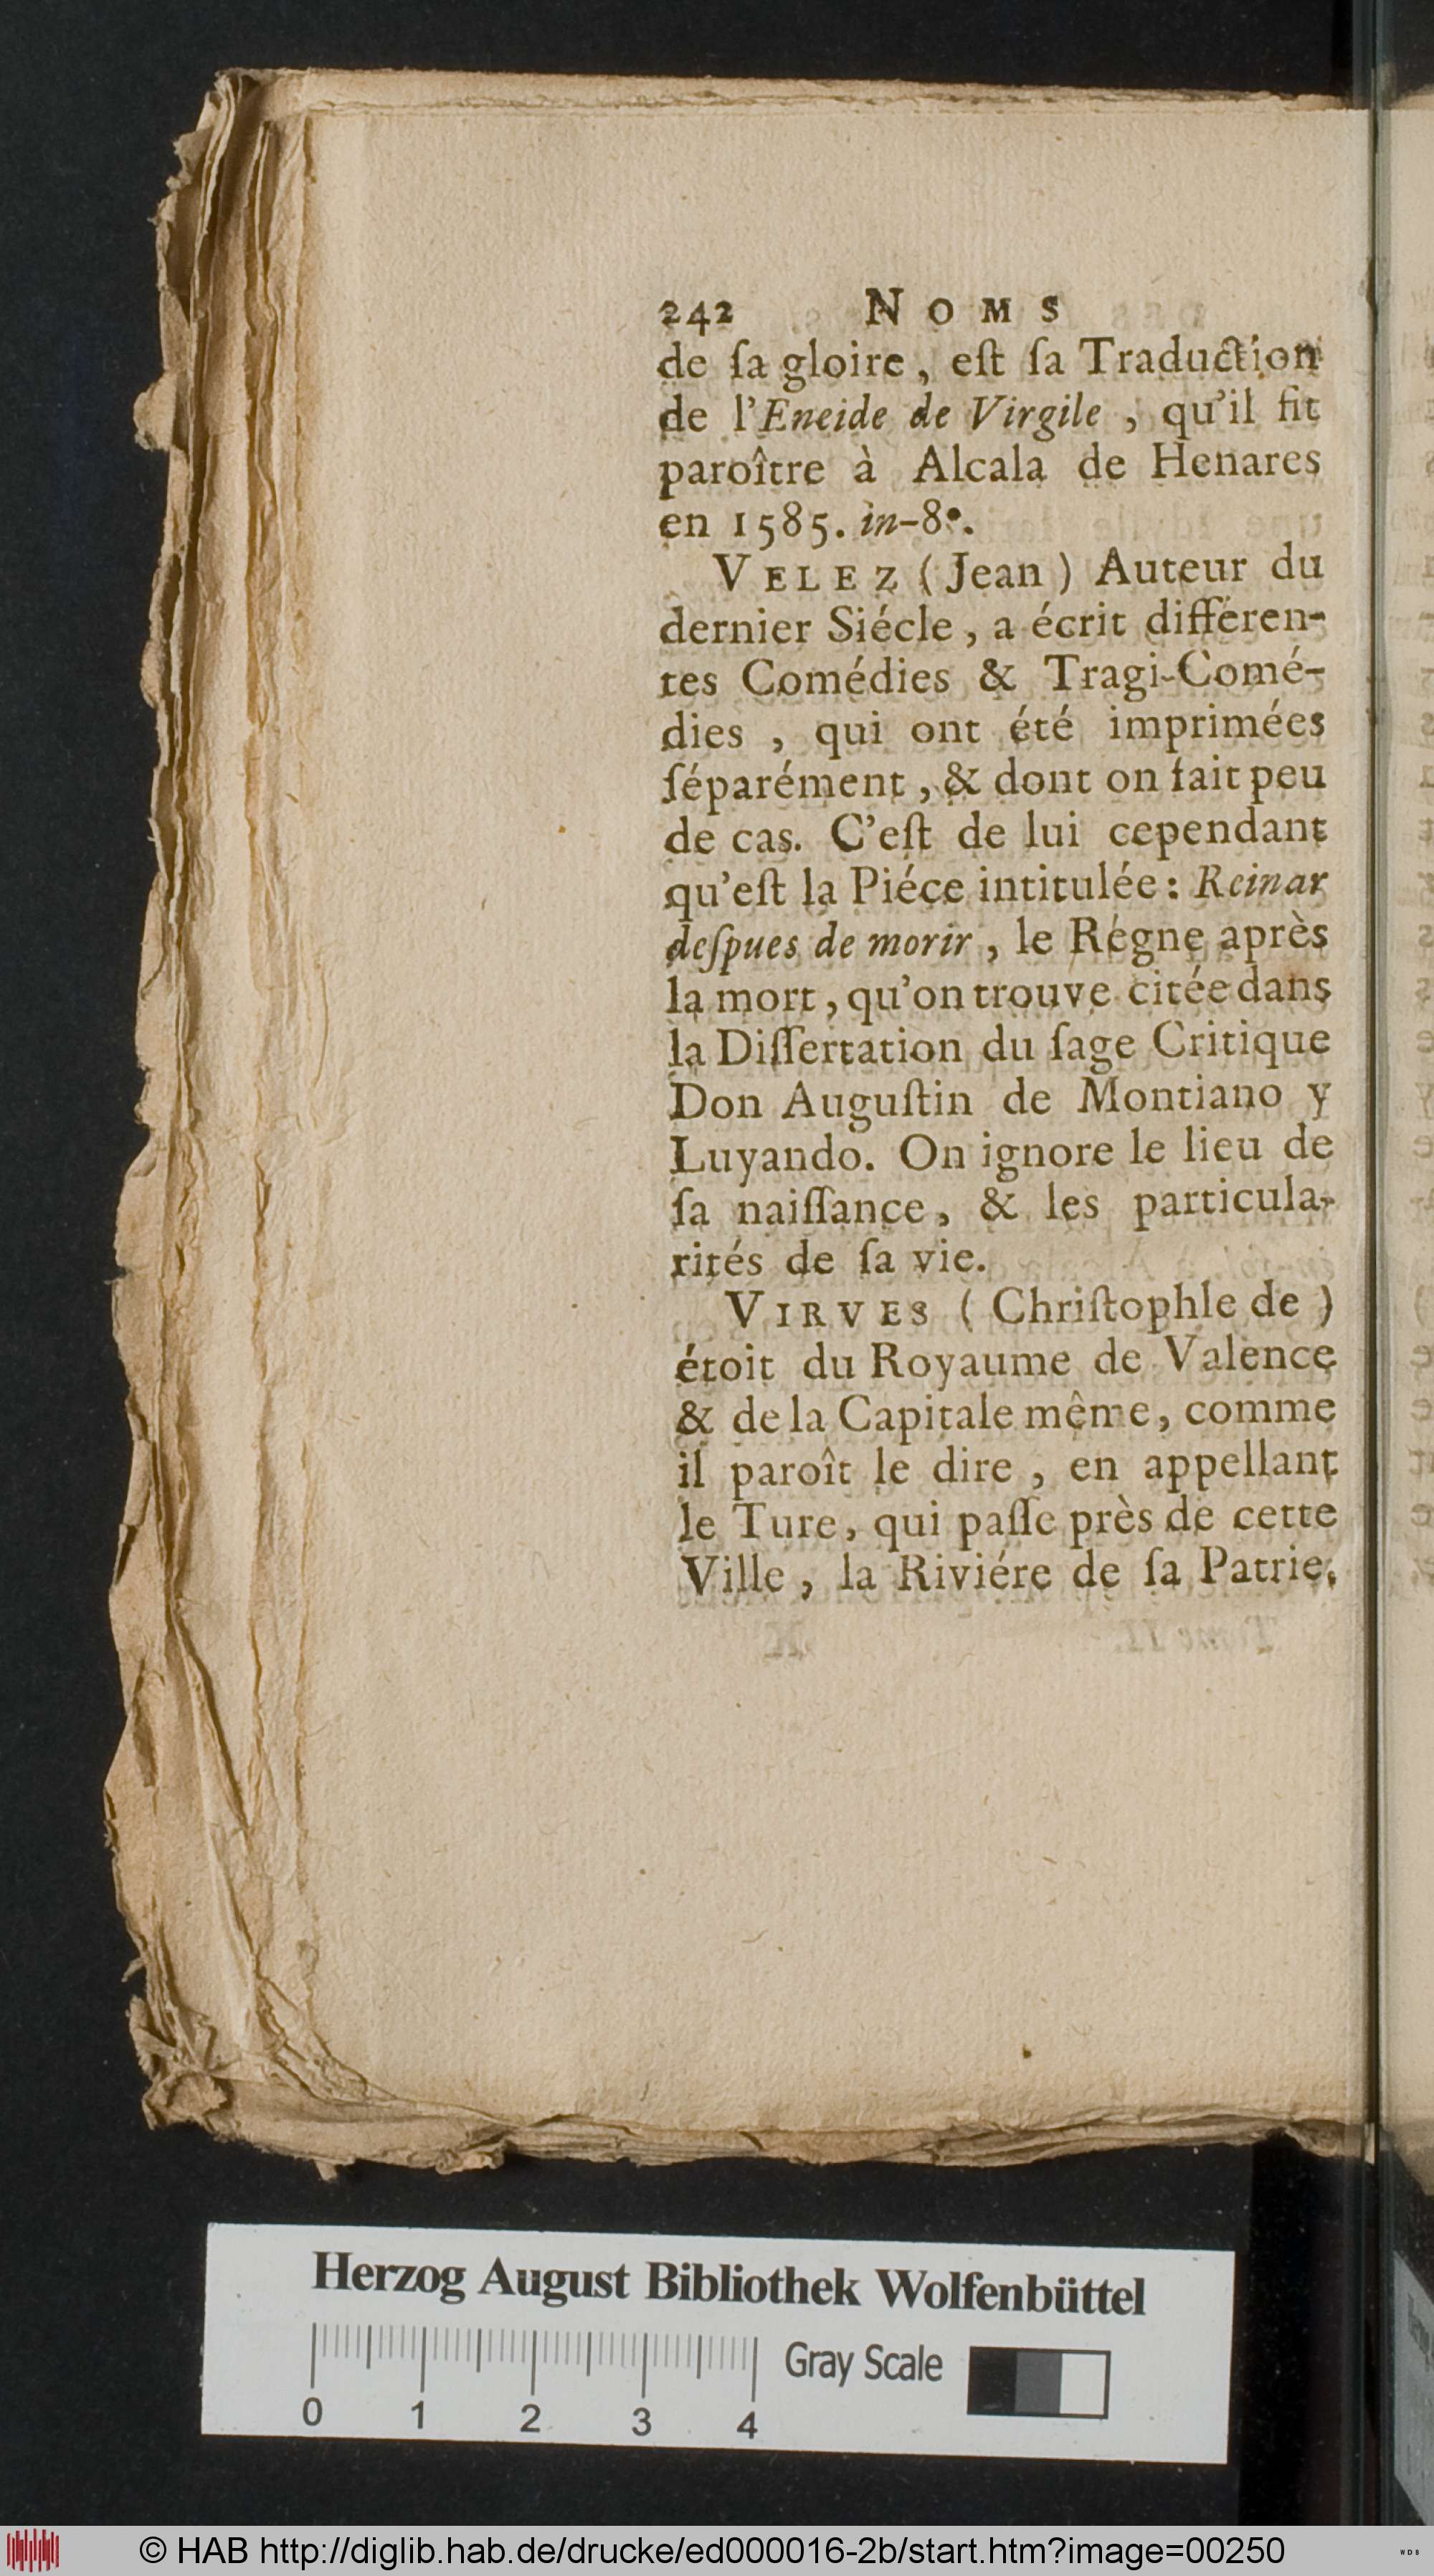 242 NOMS
de ſa gloire, eſt ſa Traduction
de l'Eneide de Virgile, qu'il fit
paroître à Alcala de Henares
en 1585. in-8°.
VELEZ (Jean) Auteur du
dernier Siécle, a écrit différen-
tes Comédies & Tragi-Comé-
dies, qui ont été imprimées
ſéparément, & dont on fait peu
de cas. C'eſt de lui cependant
qu'eſt la Piéce intitulée: Reinar
deſpues de morir, le Régne après
la mort, qu'on trouve citée dans
la Diſſertation du ſage Critique
Don Auguſtin de Montiano y
Luyando. On ignore le lieu de
ſa naiſſance, & les particula-
rités de ſa vie.
VIRVES (Chriſtophle de)
étoit du Royaume de Valence
& de la Capitale même, comme
il paroît le dire, en appellant
le Ture, qui paſſe près de cette
Ville, la Riviére de ſa Patrie;
Herzog August Bibliothek Wolfenbüttel
Gray Scale
0 1 2 3 4
© HAB http://diglib.hab.de/drucke/ed000016-2b/start.htm?image=00250